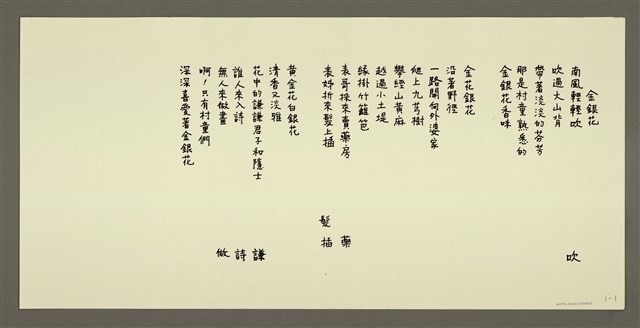 金銀花
南風輕輕吹
吹過大山背
帶著淡淡的芬芳
那是村童熟悉的
金銀花香味
金花銀花
沿著野徑
一路開向外婆家
爬上九芎樹
攀經山黃麻
越過小土堤
緣掛竹籬笆
表哥採來賣藥房
表姊折來髮上插
黃金花白銀花
清香又淡雅
花中的謙謙君子和隱士
誰人來入詩
無人來做畫
啊!只有村童們
深深喜愛著金銀花
吹
藥
插
髮
謙
詩
做
1-1